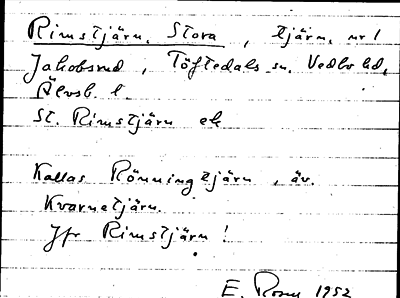 Rimstjärn, Stora, tjärn, nr 1
Jakobsrud, Töftedals sn, Vedbo hd,
Älvsb. l.
St. Rimstjärn ek
Kallas Rönningtjärn, äv.
Kvarnetjärn.
Jfr Rimstjärn!
E. Rosen 1952